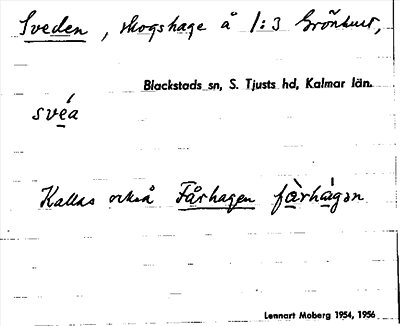 Sveden, skogshage å 1:3 Grönhult,
Blackstads sn, S. Tjusts hd, Kalmar län.
svéa
Kallas också Fårhagen fàrhágən
Lennart Moberg 1954, 1956